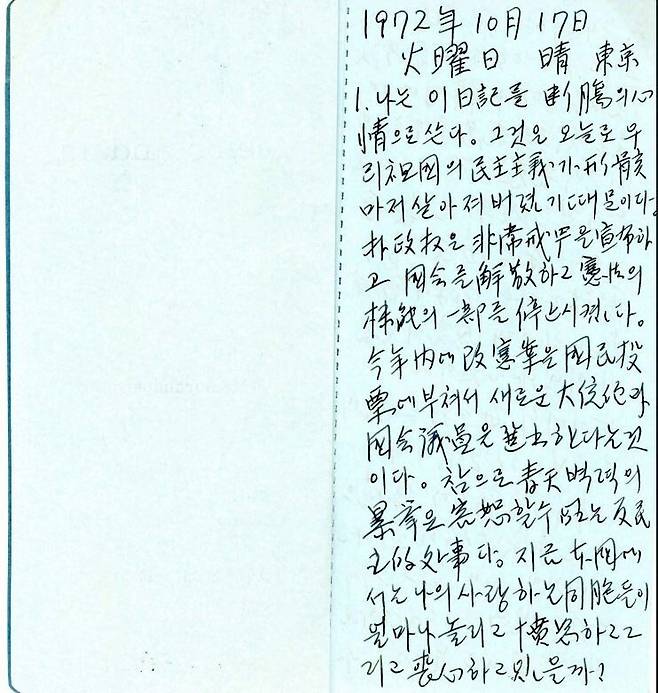 1972年 10月 17日
火曜日 晴 東京
1. 나는 이 日記를 断腸의 心
情으로 쓴다。 그것은 오늘로 우
리 祖国의 民主主義가 形骸
마저 살아져 버렸기 때문이다。
朴政权은 非常戒严을 宣布하
고 国会를 解散하고 憲法의
机能의 一部를 停止시켰다。
今年内에 改憲案을 国民投
票에 부쳐서 새로운 大統領과
国会議員을 選出한다는 것
이다。 참으로 春天벽력의
暴挙요 容恕할 수 없는 反民
主的 处事다。 지금 本国에
서는 나의 사랑하는 同胞들이
얼마나 놀라고 憤怒하고 그
리고 喪心하고 있을까?